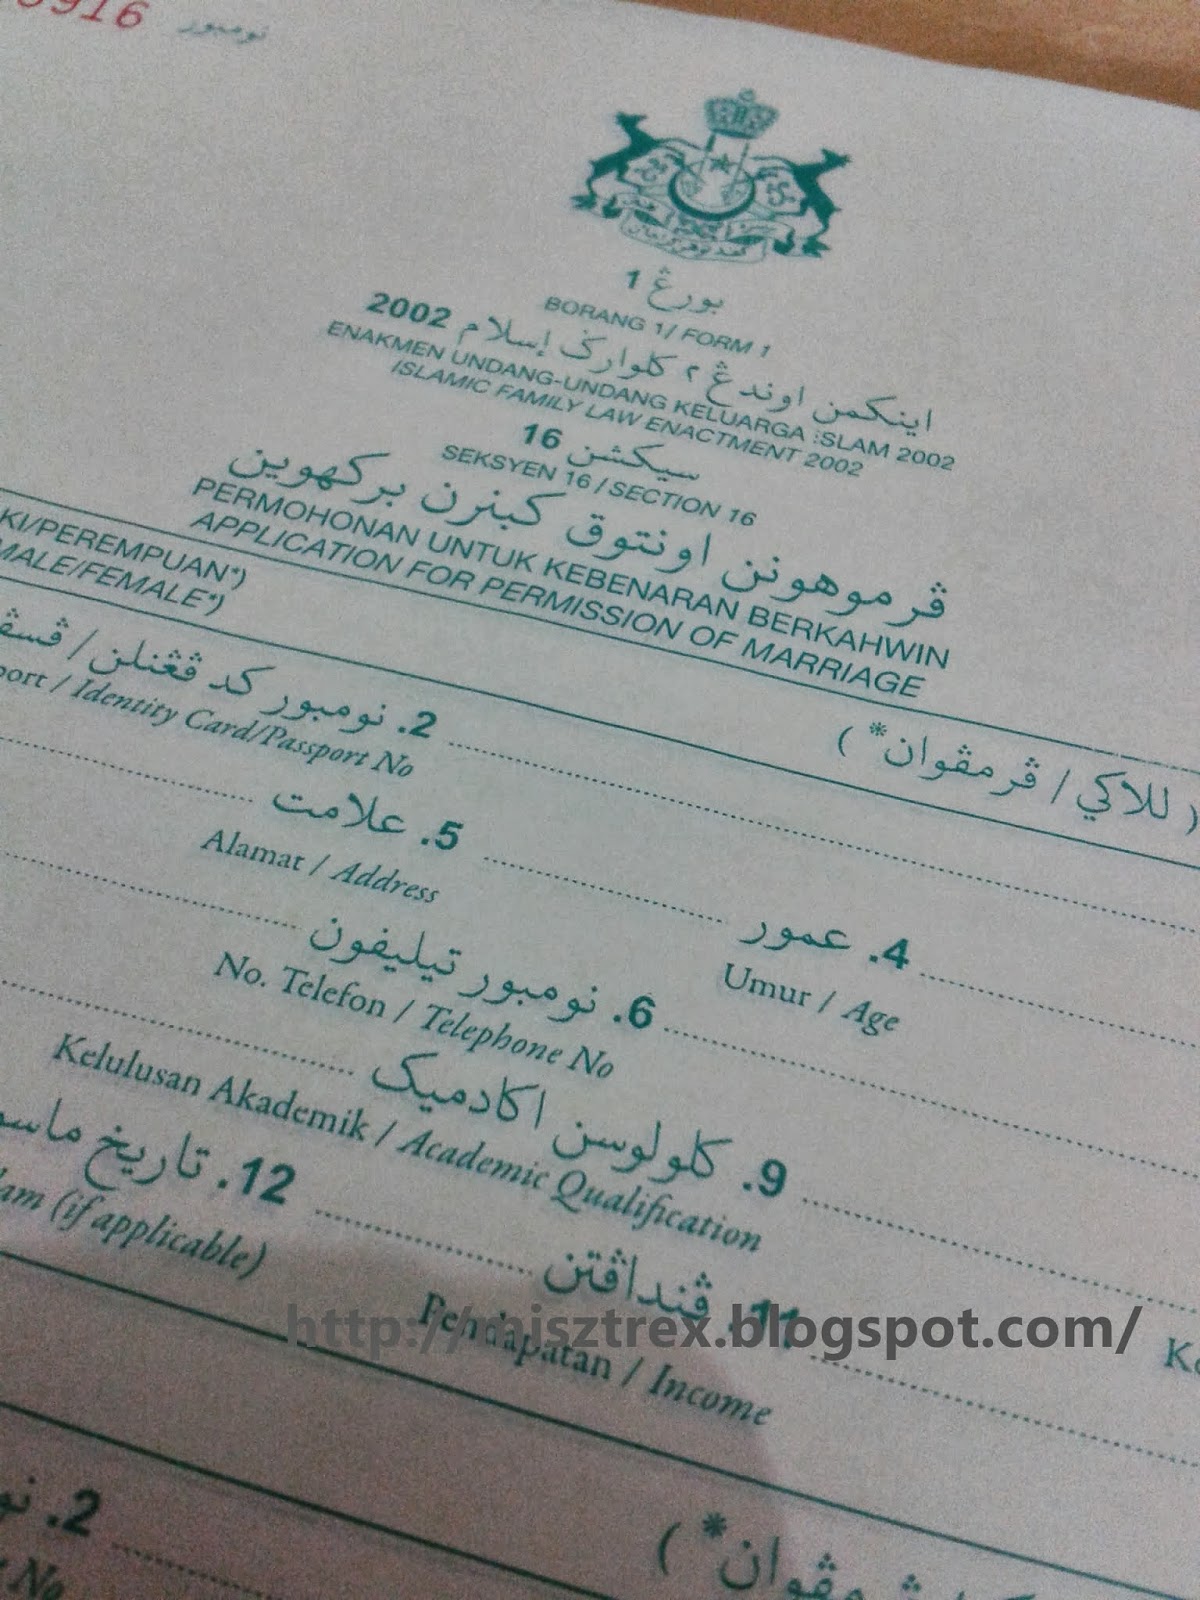 3916 نومبور
بورڠ 1
BORANG 1/ FORM 1
اينكمن اوندڠ٢ كلوارݢ إسلام 2002
ENAKMEN UNDANG-UNDANG KELUARGA ISLAM 2002
ISLAMIC FAMILY LAW ENACTMENT 2002
سيكشن 16
SEKSYEN 16 / SECTION 16
ڤرموهونن اونتوق كبنرن بركهوين
PERMOHONAN UNTUK KEBENARAN BERKAHWIN
APPLICATION FOR PERMISSION OF MARRIAGE
( للاكي / ڤرمڤوان* )
KI/PEREMPUAN*)
MALE/FEMALE*)
2. نومبور كد ڤڠنلن / ڤسڤ
port / Identity Card/Passport No
4. عمور
Umur / Age
5. علامت
Alamat / Address
6. نومبور تيليفون
No. Telefon / Telephone No
9. كلولوسن اكادميک
Kelulusan Akademik / Academic Qualification
11. ڤنداڤتن
Pendapatan / Income
12. تاريخ ماسو
lam (if applicable)
Ke
http://misztrex.blogspot.com/
ڤرمڤوان* )
2. نو
No